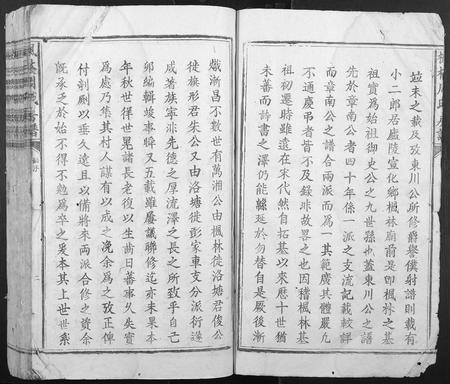 茲未之載及攷東川公所修爵譽僕射譜則載有
小二郎居廬陵宣化鄉楓林廟前是即楓林之基
祖實爲始祖御史公之九世孫也蓋東川公之譜
先於章南公者四十年係一派之支流記載較詳
而章南公之譜合兩派而爲一其範廣其體嚴凡
不通慶弔者皆不及錄非故畧之也因稽楓林基
祖初遷時雖遠在宋代然自拓基以來歷十世猶
未蕃而詩書之澤仍能緜延於勿替自是厥後漸
熾漸昌不數世有萬湘公由楓林徙洛塘君俊公
徙旗形君朱公又由洛塘徙彭家車支分派衍遂
成著族寧非先德之厚流澤之長之所致乎自己
卯編輯竣事瞬又五載雖屢議聯修迄亦未果本
年秋世徉世晃諸長老復以生齒日蕃事久失實
爲處乃集其村人謀有以成之浼余爲之攷正俾
付剞劂以垂久遠且以備將來兩派合修之資余
旣承乏於始不得不勉爲卒之爰本其上世世系